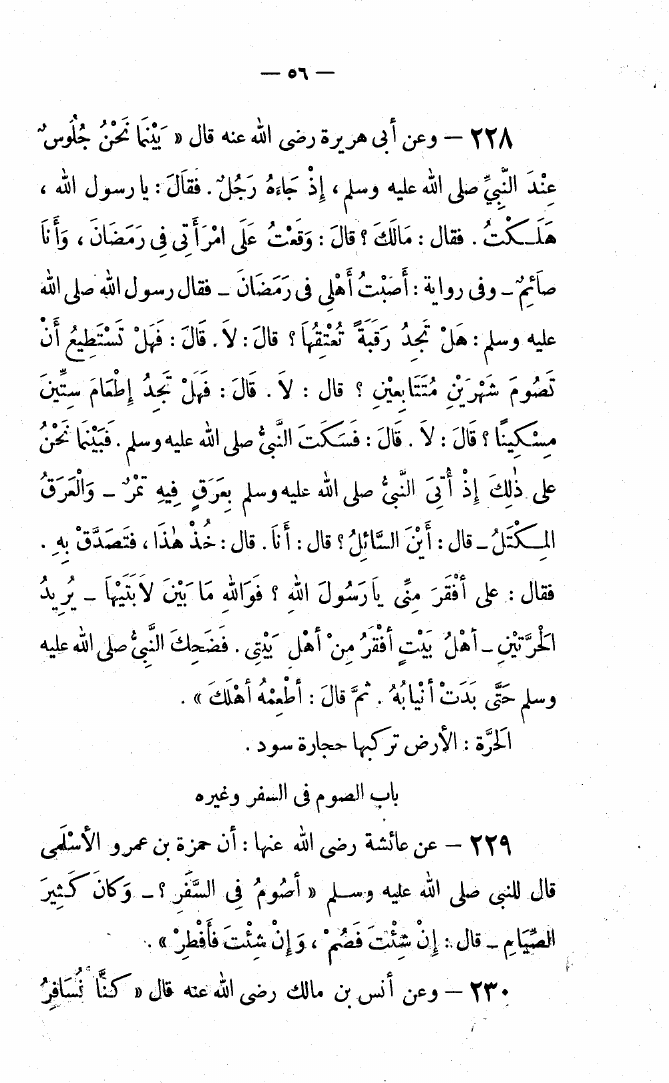 — ٥٦ —
٢٢٨ — وعن أبى هريرة رضى الله عنه قال « بَيْنَمَا نَحْنُ جُلُوسٌ
عِنْدَ النَّبِيِّ صلى الله عليه وسلم، إِذْ جَاءَهُ رَجُلٌ. فقَالَ: يا رسول الله ،
هَلَكْتُ. فقال: مَالَكَ؟ قالَ: وَقَعْتُ عَلَى امْرَأَتِى فِى رَمَضَانَ، وَأَنَا
صائِمٌ ـ وفى رواية: أَصَبْتُ أَهْلِى فى رَمَضَانَ ـ فقال رسول الله صلى الله
عليه وسلم: هَلْ تَجِدُ رَقَبَةً تُعْتِقُهَا؟ قالَ: لاَ. قَالَ: فَهَلْ تَسْتَطِيعُ أَنْ
تَصُومَ شَهْرَيْنِ مُتَتَابِعَيْنِ؟ قال: لاَ. قَالَ: فَهَلْ تَجِدُ إِطْعَامَ سِتِّينَ
مِسْكِينًا؟ قَالَ: لاَ. قَالَ: فَسَكَتَ النَّبىُّ صلى الله عليه وسلم. فَبَيْنَمَا نَحْنُ
على ذٰلِكَ إِذْ أُتِىَ النَّبىُّ صلى الله عليه وسلم بِعَرَقٍ فِيهِ تَمْرٌ ـ وَالْعَرَقُ
المِكْتَلُ ـ قال: أَيْنَ السَّائِلُ؟ قال: أَنَا. قال: خُذْ هٰذَا، فَتَصَدَّقْ بِهِ.
فقال: على أَفْقَرَ مِنِّى يَا رَسُولَ اللهِ؟ فَوَاللهِ مَا بَيْنَ لاَبَتَيْهَا ـ يُرِيدُ
الحَرَّتَيْنِ ـ أَهْلُ بَيْتٍ أَفْقَرُ مِنْ أَهْلِ بَيْتِى. فَضَحِكَ النَّبىُّ صلى الله عليه
وسلم حَتَّى بَدَتْ أَنْيَابُهُ. ثمَّ قالَ: أَطْعِمْهُ أَهْلَكَ ».
الحَرَّة: الأرض تركبها حجارة سود.
باب الصوم فى السفر وغيره
٢٢٩ — عن عائشة رضى الله عنها: أن حمزة بن عمرو الأَسْلَمى
قال للنبى صلى الله عليه وسلم « أَصُومُ فِى السَّفَرِ؟ ـ وَكَانَ كَثِيرَ
الصِّيَامِ ـ قال: إِنْ شِئْتَ فَصُمْ، وَإِنْ شِئْتَ فَأَفْطِرْ ».
٢٣٠ — وعن أنس بن مالك رضى الله عنه قال « كُنَّا نُسَافِرُ